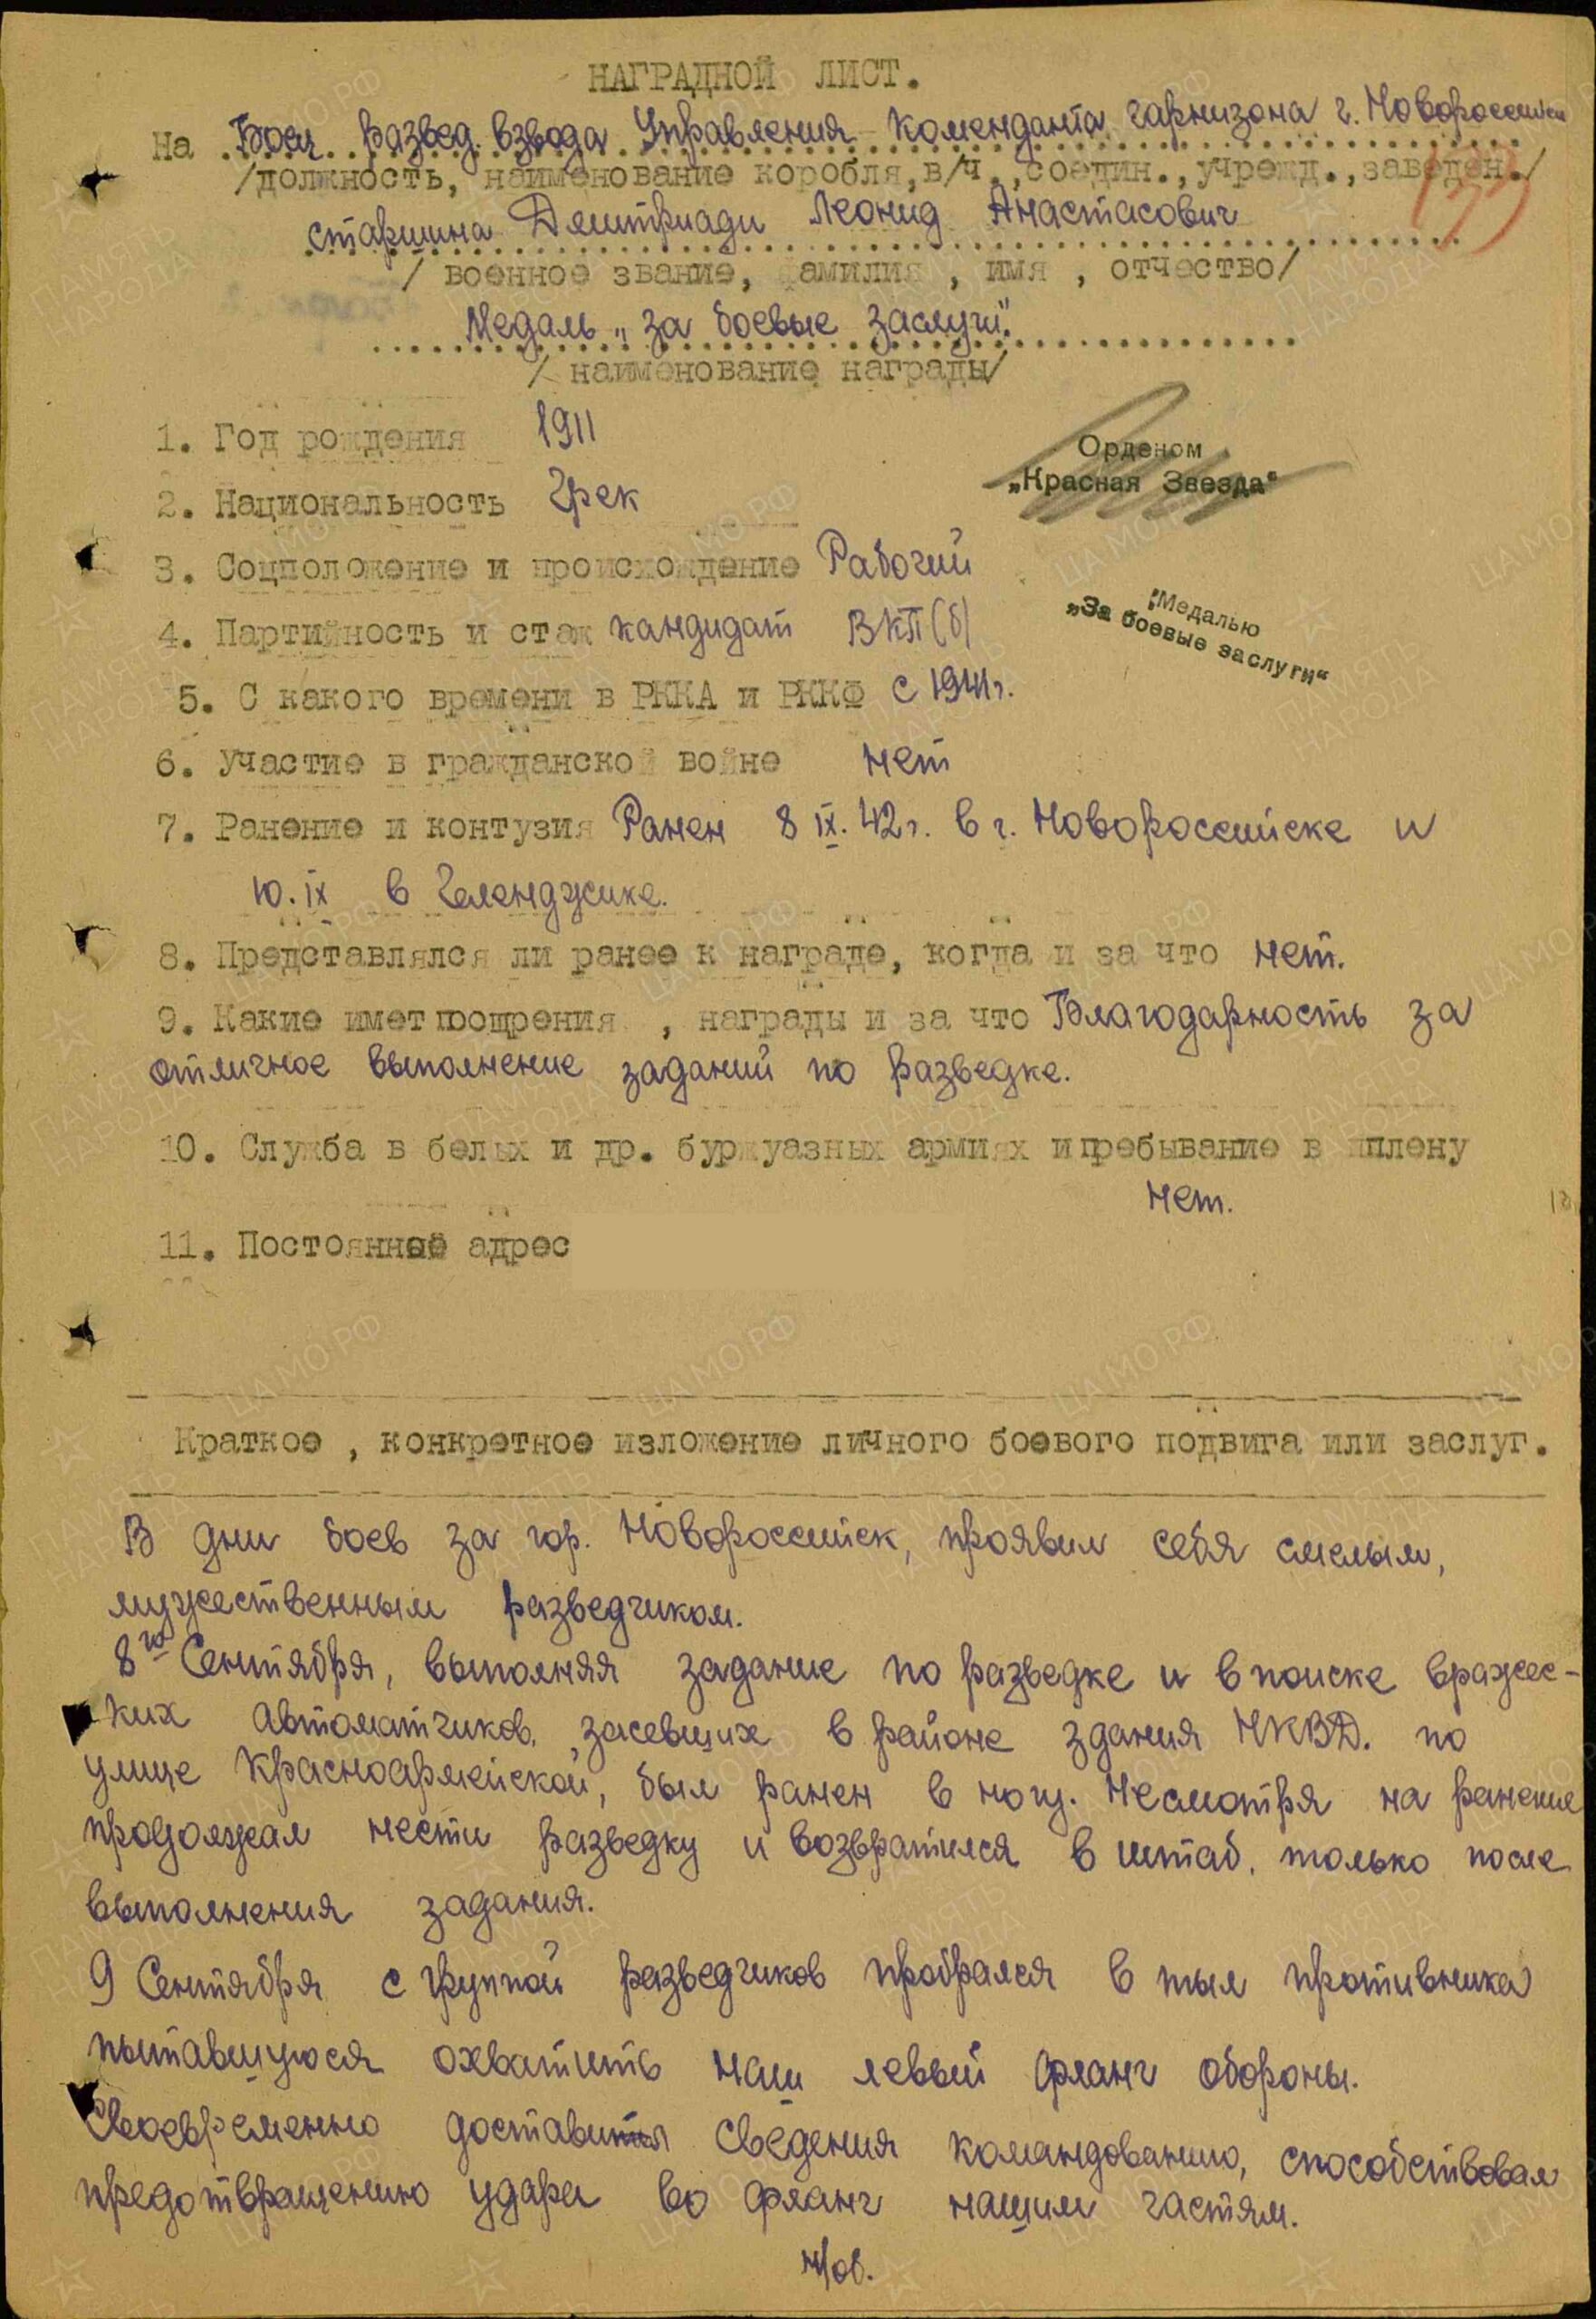 НАГРАДНОЙ ЛИСТ.
На Боец развед. взвода Управления Коменданта гарнизона г. Новороссийск
/должность, наименование коробля, в/ч., соедин., учрежд., заведен./
старшина Дмитриади Леонид Анастасович
/ военное звание, фамилия , имя , отчество/
Медаль „за боевые заслуги".
/ наименование награды/
1. Год рождения 1911
Орденом
„Красная Звезда"
2. Национальность Грек
3. Соцположение и происхождение Рабочий
„Медалью
„За боевые заслуги"
4. Партийность и стаж кандидат ВКП(б)
5. С какого времени в РККА и РККФ с 1941г.
6. Участие в гражданской войне нет
7. Ранение и контузия Ранен 8 IX. 42г. в г. Новороссийске и
10. IX в Геленджике.
8. Представлялся ли ранее к награде, когда и за что нет.
9. Какие имет поощрения , награды и за что Благодарность за
отличное выполнение заданий по разведке.
10. Служба в белых и др. буржуазных армиях и пребывание в пплену
нет.
11. Постоянное адрес
Краткое , конкретное изложение личного боевого подвига или заслуг.
В дни боев за гор. Новороссийск, проявил себя смелым,
мужественным разведчиком.
8го Сентября, выполняя задание по разведке и в поиске вражес-
ких автоматчиков, засевших в районе здания НКВД. по
улице Красноармейской, был ранен в ногу. Несмотря на ранение
продолжал нести разведку и возвратился в штаб, только после
выполнения задания.
9 Сентября с группой разведчиков пробрался в тыл противника
пытавшуюся охватить наш левый фланг обороны.
Своевременно доставил сведения командованию, способствовал
предотвращению удара во фланг нашим частям.
н/об.